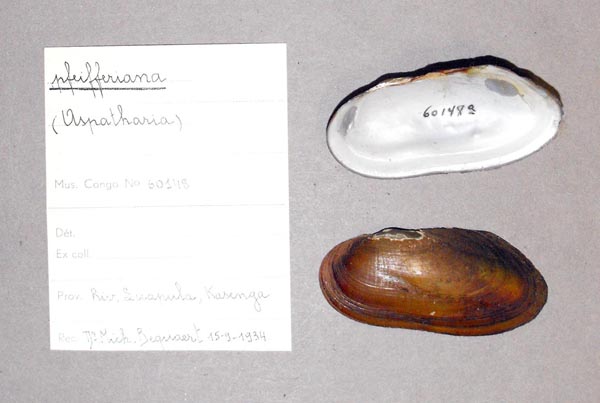 pfeifferiana
(Aspatharia)
Mus. Congo No 60148
Dét.
Ex coll.
Prov. Riv. Kasenga
Rec. Bequaert 15-9-1934
60148a